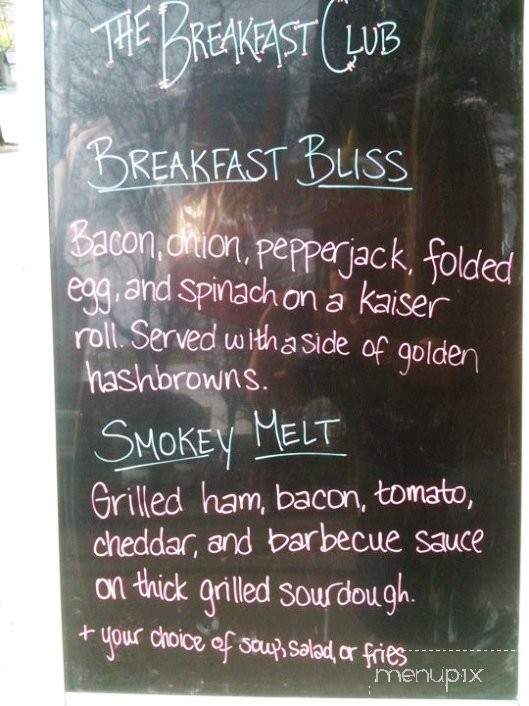 THE BREAKFAST CLUB
BREAKFAST BLISS
Bacon, onion, pepperjack, folded
egg, and spinach on a kaiser
roll. Served with a side of golden
hashbrowns.
SMOKEY MELT
Grilled ham, bacon, tomato,
cheddar, and barbecue sauce
on thick grilled sourdough.
+ your choice of soup, salad, or fries
menupix